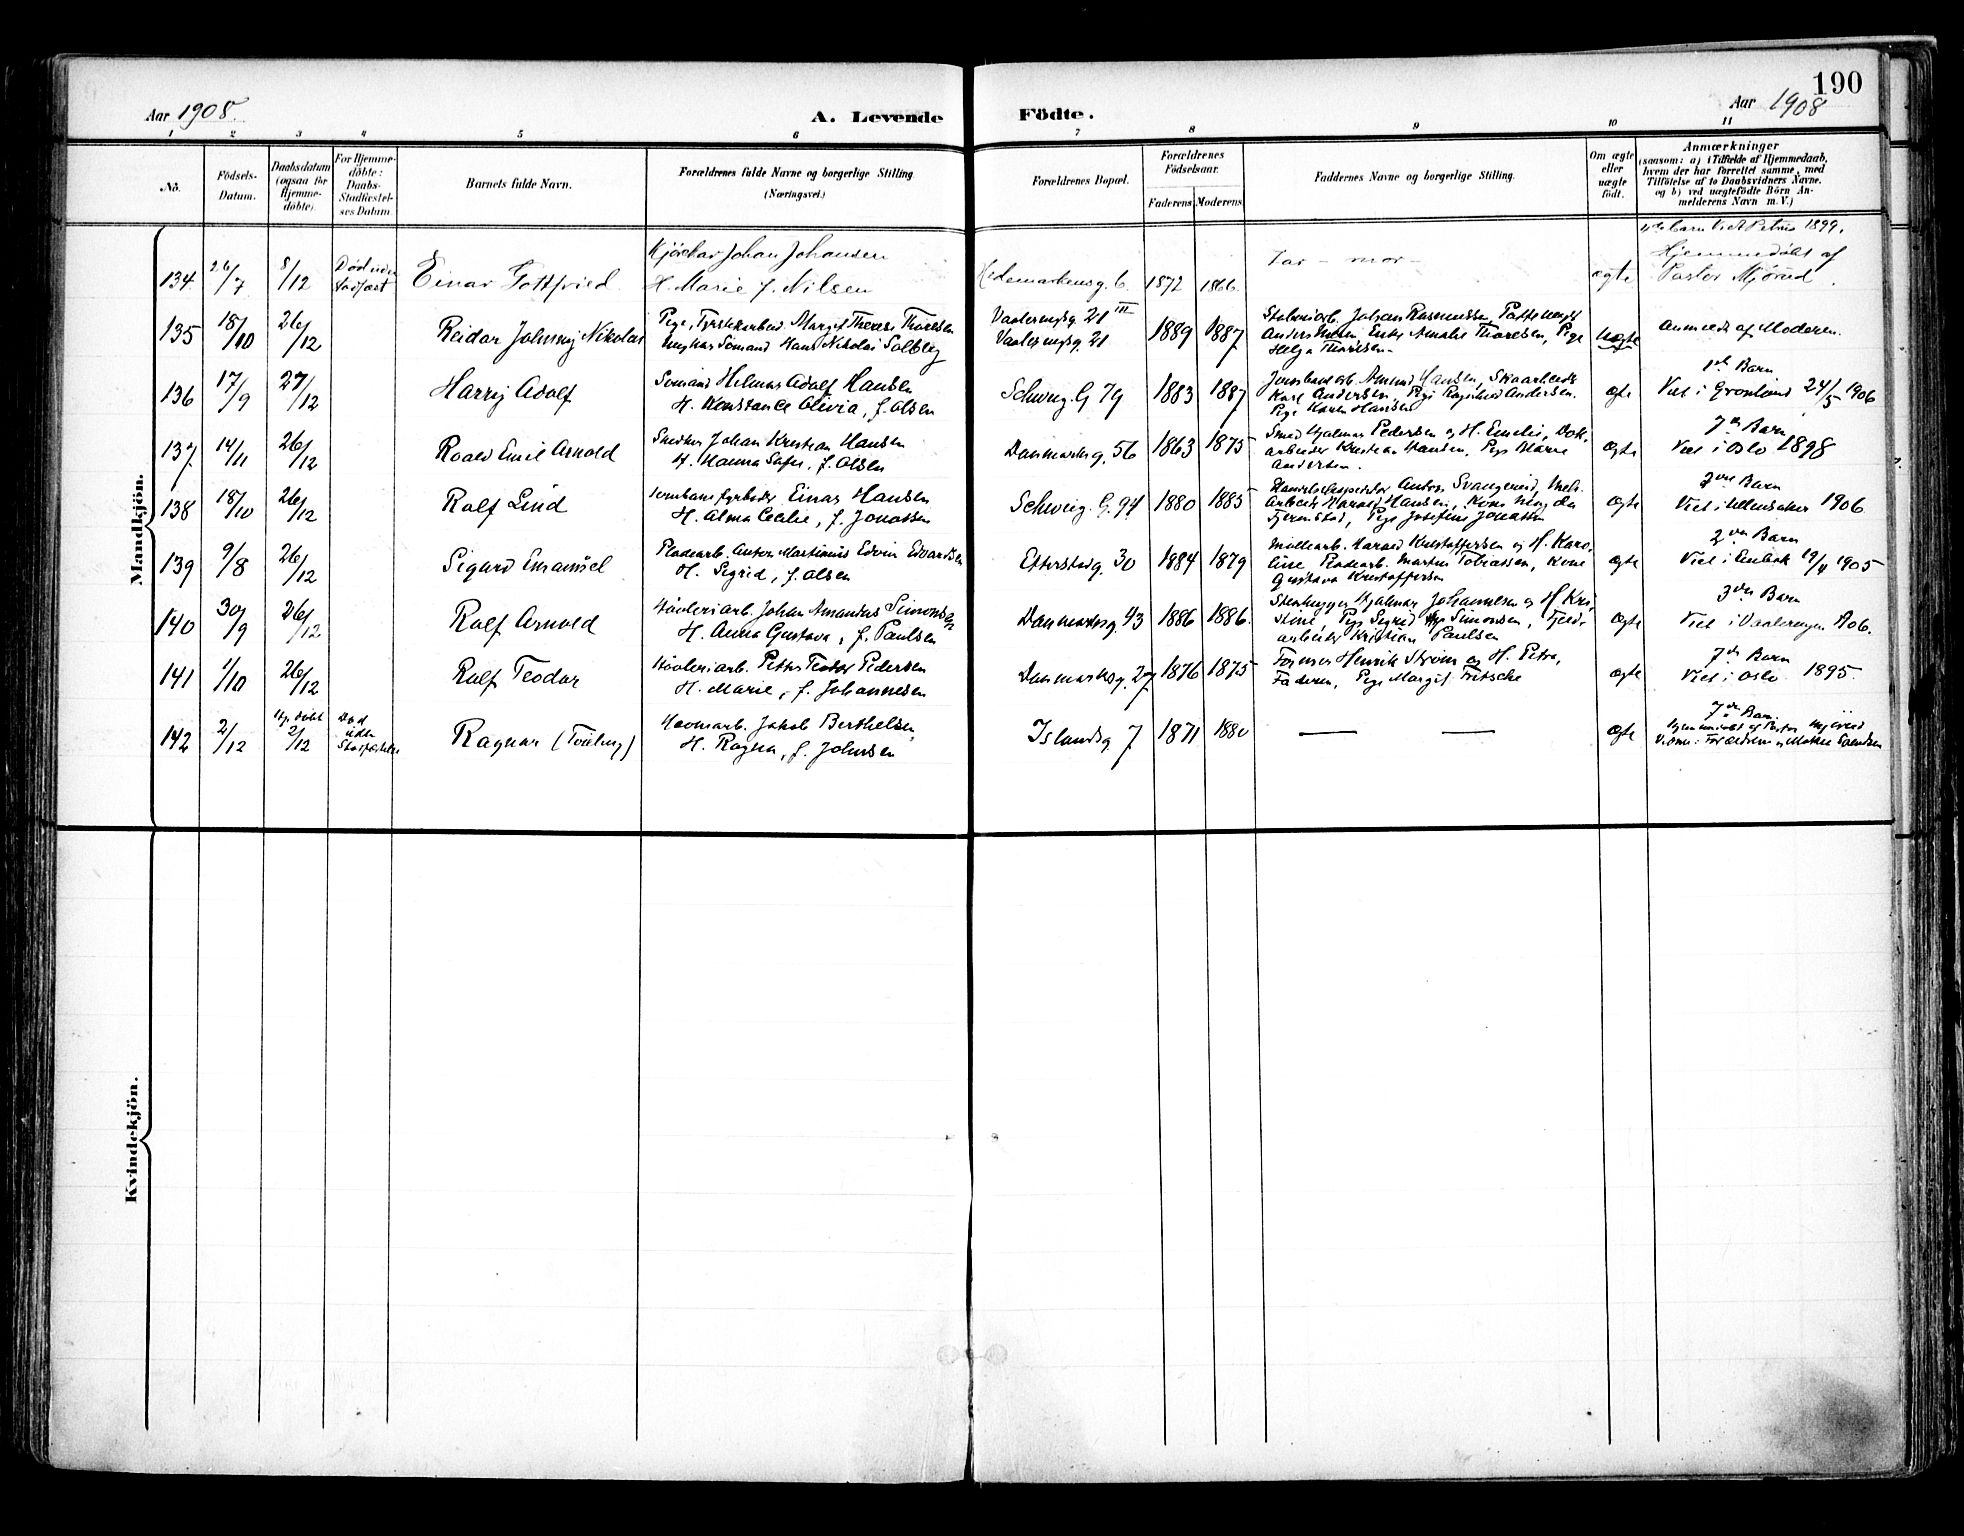 190
Aar 1908.
A. Levende Födte.
Aar 1908
1 2 3 4 5 6 7 8 9 10 11
No.
Födsels-Datum.
Daabsdatum (ogsaa for Hjemme-döbte).
For Hjemme-döbte: Daabs-Stadfæstel-ses Datum
Barnets fulde Navn.
Forældrenes fulde Navne og borgerlige Stilling (Næringsvei.)
Forældrenes Bopæl.
Forældrenes Födselsaar.
Faderens Moderens
Faddernes Navne og borgerlige Stilling.
Om ægte eller uægte födt.
Anmærkninger
(saasom: a) i Tilfælde af Hjemmedaab,
hvem der har forrettet samme, med
Tilföielse af to Daabsvidners Navne.
og b) ved uægtefödte Börn An-
melderens Navn m. V.)
Mandkjön.
134 26/7 8/12 Död uden stadfæst Einar Gottfried
Kjörekar Johan Johansen
H. Marie f. Nilsen
Hedemarkensg. 6 1872 1866
Far - mor -
ægte
barn Viet Petrus 1899.
Hjemmedöbt af
Pastor Mjörud.
135 18/10 26/12 Reidar Johnny Nikolai
Pige, Fyrstikarbeid. Margit Therese Thorelsen
Ungkar Sömand Hans Nikolai Solberg
Vaalerengsg. 21 III
Vaalerengsg. 21
1889 1887
Johan Rasmussen,
Enke Amalie Thorelsen, Pige
Helga Thorelsen
uægte
Anmeldt af Moderen.
136 17/9 27/12 Harry Adolf
Sömand Hilmar Adolf Hansen
H. Konstance Olivia, f. Olsen
Schweig. G 79 1883 1887
Amund Hansen, Skoarbeider
Karl Andersen, Pige Ragnhild Andersen.
Pige Karen Hansen
ægte
1ste Barn
Viet i Grönland 24/5 1906
137 14/11 26/12 Roald Emil Arnold
Snedker Johan Kristian Hansen
H. Hanna Sofie, f. Olsen
Danmarksg. 56 1863 1875
Smed Hjalmar Pedersen og H. Emelie, Dok-
arbeider Kristian Hansen, Pige Marie
Andersen.
ægte
7de Barn
Viet i Oslo 1898
138 18/10 26/12 Rolf Lind
Jernbanefyrböder Einar Hansen
H. Alma Cecilie, f. Jonassen
Schweig. G. 94 1880 1885
Anton Svangerud, Mek.
Arbeider Harald Hansen, Kone Magda
Fjernstad, Pige Josefine Jonassen
ægte
2det Barn
Viet i Ullensaker 1906
139 9/8 26/12 Sigurd Emanuel
Pladearb. Anton Martinius Edvin Edvardsen
H. Sigrid, f. Olsen
Etterstadg. 30 1884 1879
Möllearb. Harald Kristoffersen og H. Karo-
line Pladearb. Martin Tobiassen, Kone
Gustava Kristoffersen
ægte
2det Barn
Viet i Enebak 19/4 1905
140 30/9 26/12 Rolf Arnold
Hövleriarb. Johan Amandus Simonsen
H. Anna Gustava, f. Paulsen
Danmarksg. 43 1886 1886.
Stenhugger Hjalmar Johannesen og H Kri-
stine, Pige Sigrid Simonsen,
arbeider Kristian Paulsen
ægte
3die Barn
Viet i Vaalerengen 1906.
141 1/10 26/12 Rolf Teodor
Hövleriarb. Petter Teodor Pedersen
H. Marie, f. Johannesen
Danmarksg. 27 1876 1875
Former Henrik Ström og H. Petra,
Faderen, Pige Margit Fritsche
ægte
7de Barn
Viet i Oslo 1895.
142 2/12 Hj. döbt 2/12 Död uden Stadfæstelse Ragnar (Tvilling)
Havnearb. Jakob Berthelsen,
H. Ragna, f. Johnsen
Islandsg 7 1871 1880
— —
ægte
7de Barn
Hjemmedöbt af Pastor Mjörud
Vidner: Forældrene og Mathea Svendsen
Kvindekjön.